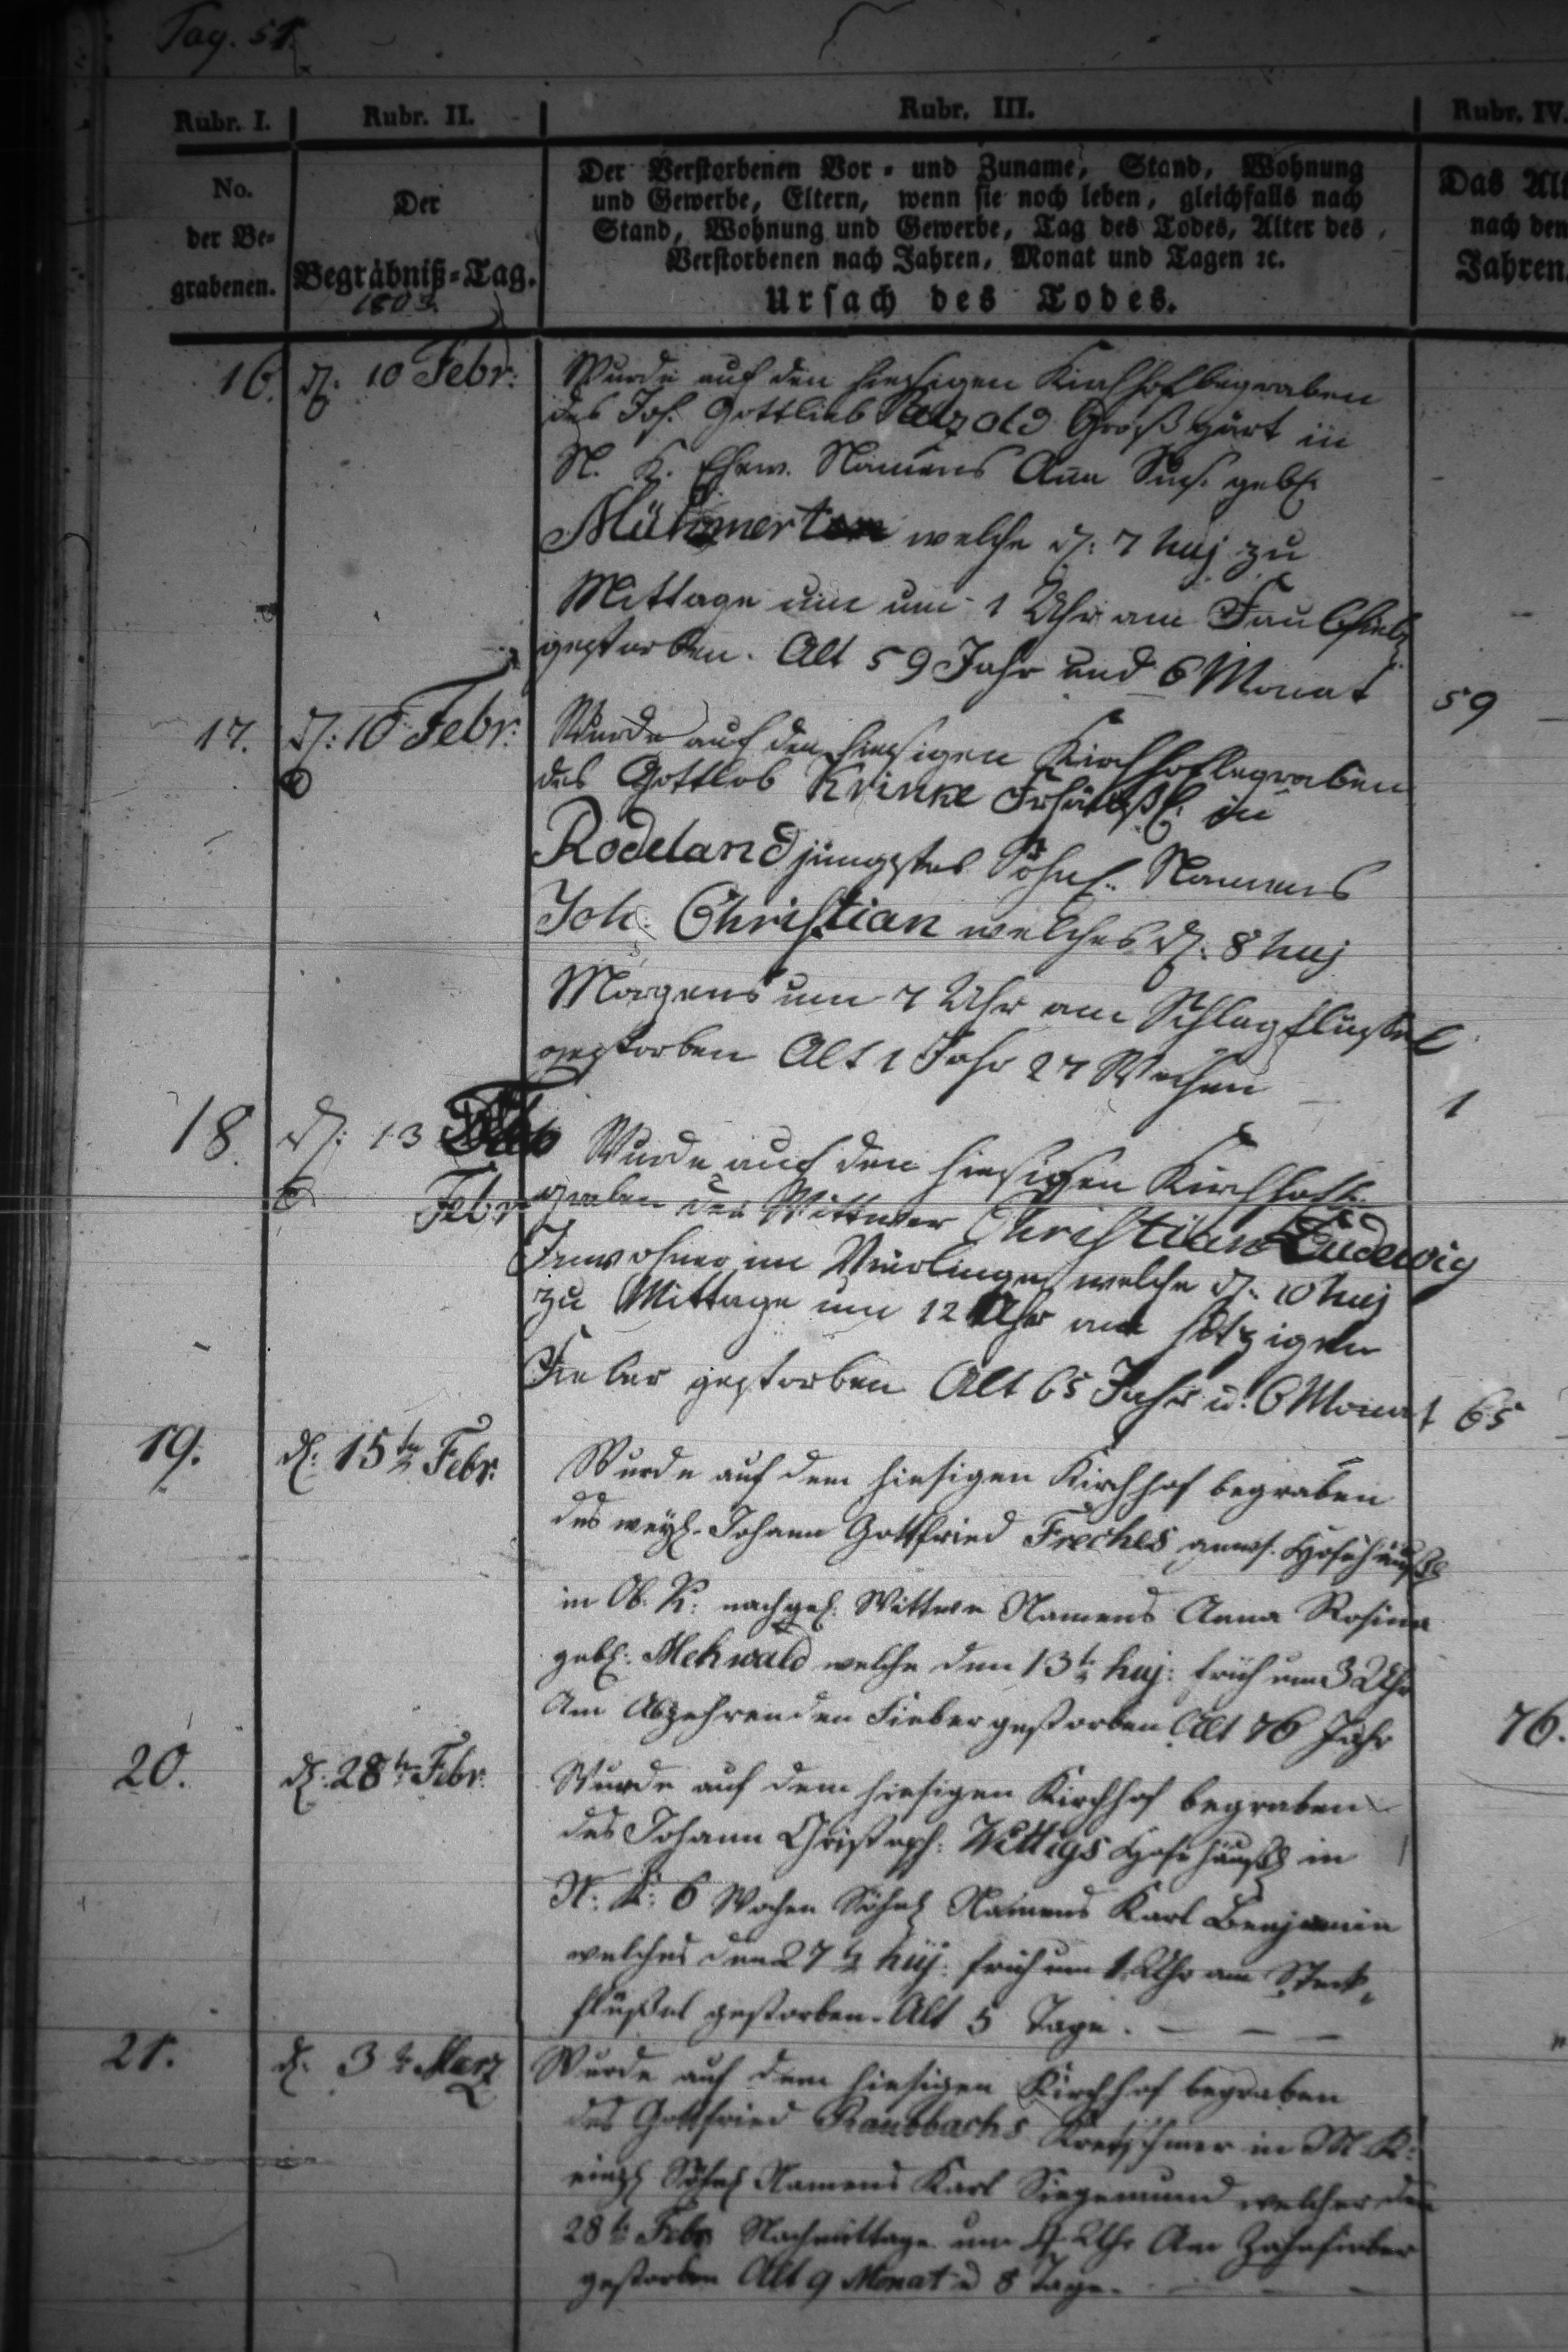 Pag. 51.
Rubr. I.
Rubr. II.
Rubr. III.
Rubr. IV.
No.
der Be=
grabenen.
Der
Begräbniß=Tag.
1803.
Der Verstorbenen Vor= und Zuname, Stand, Wohnung
und Gewerbe, Eltern, wenn sie noch leben, gleichfalls nach
Stand, Wohnung und Gewerbe, Tag des Todes, Alter des
Verstorbenen nach Jahren, Monat und Tagen ꝛc.
Ursach des Todes.
Das Alt
nach den
Jahren.
16. d. 10 Febr:
Wurde auf den hiesigen Kirchhof begraben
des Joh. Gottlieb Großgärt in
N. K. Ehew. Namens Ana Sus. geb.
welche d: 7 huj zu
Mittage um 1 Uhr am
gestorben. Alt 59 Jahr und 6 Monat 59
17. d: 10 Febr:
Wurde auf den hiesigen Kirchhof begraben
des Gottlob Krinke in
Rodeland jüngstes Söhnl. Namens
Joh. Christian welches d. 8 huj
Morgens um 7 Uhr am Schlagflüssel
gestorben Alt 1 Jahr 27 Wochen 1
18. d: 13 Febr
Wurde auf den hiesigen Kirchhof be
graben der Wittwer Christian Ludewig
Inwohner im welche d. 10 huj
zu Mittage um 12 Uhr am hitzigen
Fieber gestorben Alt 65 Jahr u. 6 Monat 65
19. d. 15tn Febr.
Wurde auf dem hiesigen Kirchhof begraben
des weyl. Johann Gottfried Freches gewes. Hofehäußl
in Ob. K: nachgel. Wittwe Namens Anna Rosina
gebl. Mehwald welche den 13tn huj: früh um 3 Uhr
Am Abzehrenden Fieber gestorben Alt 76 Jahr 76.
20. d. 28tn Febr.
Wurde auf dem hiesigen Kirchhof begraben
des Johann Christoph: Wittigs Hofehäußl in
N: K: 6 Wochen Söhnl Namens Karl Benjamin
welches den 27tn huj: früh um 1 Uhr am Steck=
flüßel gestorben. Alt 5 Tage. — — —
21. d. 3tn Marz
Wurde auf dem hiesigen Kirchhof begraben
des Gottfried Raubbachs Kretschmer in M. K:
einzl Söhnl Namens Karl Siegemund welcher den
28tn Febr Nachmittage um 4 Uhr Am Zahnfieber
gestorben Alt 9 Monat u 8 Tage.